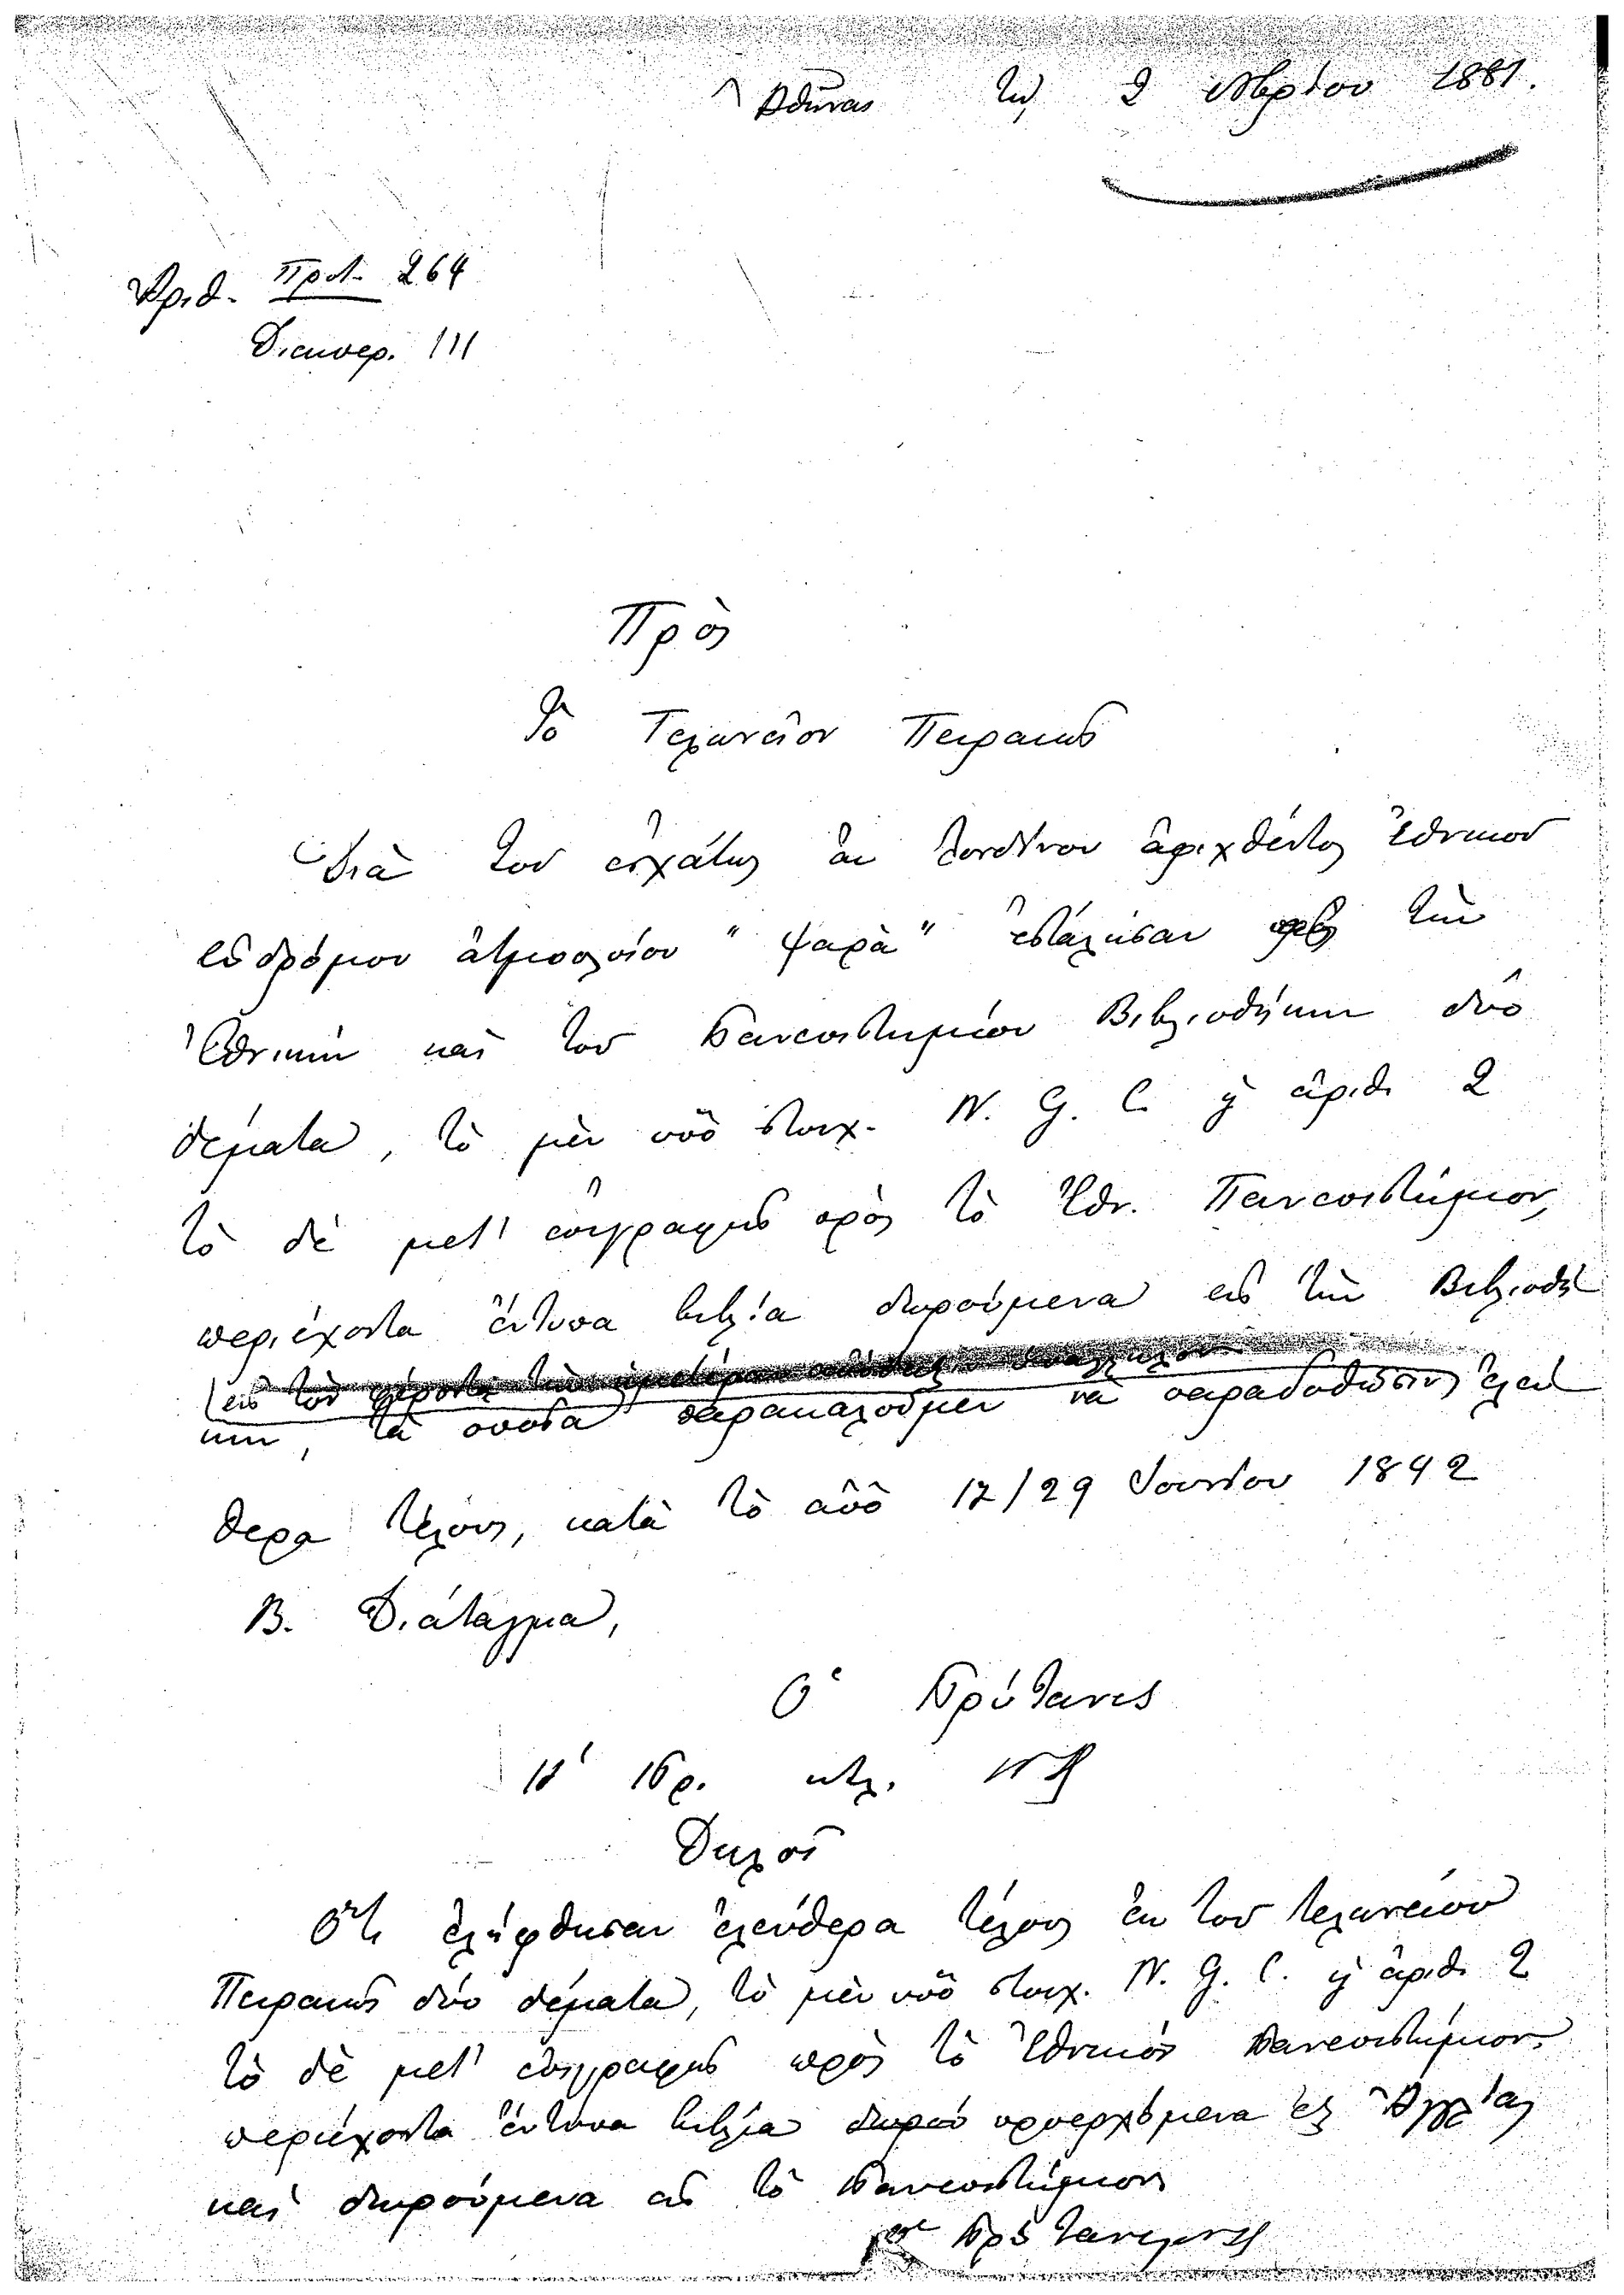 Ἀθῆνας τῇ 2 Μαρτίου 1881.
Ἀριθ. Πρωτ. 264
Διεκπερ. 111
Πρὸς
Τὸ Τελωνεῖον Πειραιῶς
Διὰ τοῦ ἐσχάτως ἐκ Λονδίνου ἀφιχθέντος Ἐθνικοῦ
εὐδρόμου ἀτμοπλοίου " Ψαρὰ " ἐστάλησαν πρὸς τὴν
Ἐθνικὴν καὶ τοῦ Πανεπιστημίου Βιβλιοθήκην δύο
δέματα, τὸ μὲν ὑπὸ στοιχ. N. G. C. ἀριθ. 2
τὸ δὲ μετ' ἐπιγραφῆς πρὸς τὸ Ἐθν. Πανεπιστήμιον,
περιέχοντα ἔντυπα βιβλία δωρούμενα εἰς τὴν Βιβλιοθή
εἰς τὸν φέροντα τὴν ἡμετέραν ἀπόδειξιν
κην, τὰ ὁποῖα παρακαλοῦμεν νὰ παραδοθῶσιν ἐλεύ
θερα τέλους, κατὰ τὸ ἀπὸ 17/29 Ἰουνίου 1842
Β. Διάταγμα,
Ὁ Πρύτανις
κτλ.
Δηλοῖ
Ὅτι ἐλήφθησαν ἐλεύθερα τέλους ἐκ τοῦ τελωνείου
Πειραιῶς δύο δέματα, τὸ μὲν ὑπὸ στοιχ. N. G. C. ἀριθ. 2
τὸ δὲ μετ' ἐπιγραφῆς πρὸς τὸ Ἐθνικὸν Πανεπιστήμιον
περιέχοντα ἔντυπα βιβλία δωρού προερχόμενα ἐξ Ἀγγλίας
καὶ δωρούμενα εἰς τὸ Πανεπιστήμιον